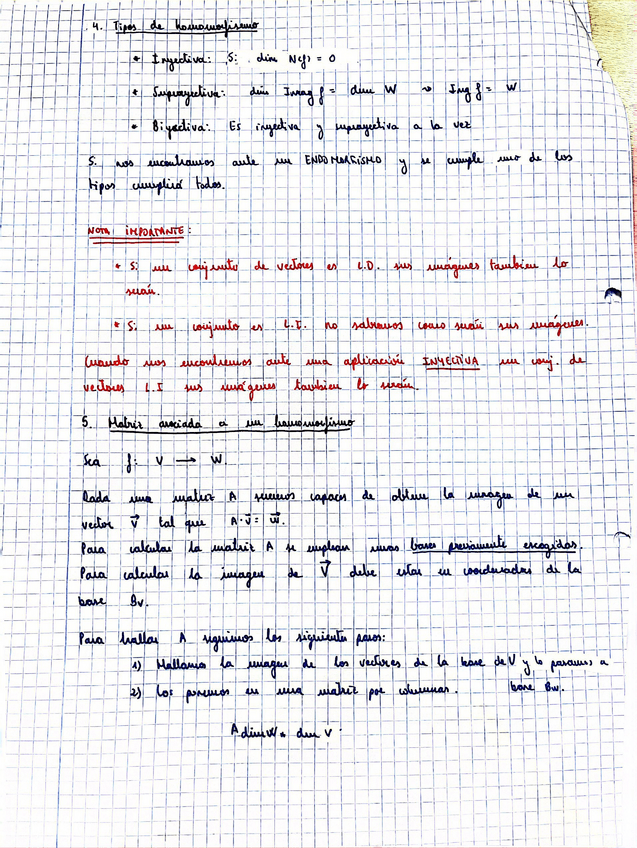 4. Tipos de homomorfismo
* Inyectiva: Si dim N(f) = 0
* Suprayectiva: dim Imag f = dim W ~> Img f = W
* Biyectiva: Es inyectiva y suprayectiva a la vez
Si nos encontramos ante un ENDOMORFISMO y se cumple uno de los
tipos cumplirá todos.
NOTA IMPORTANTE:
* Si un conjunto de vectores es L.D. sus imágenes tambien lo
serán.
* Si un conjunto es L.I. no sabremos como serán sus imágenes.
Cuando nos encontremos ante una aplicación INYECTIVA un conj. de
vectores L.I sus imágenes tambien lo serán.
5. Matriz asociada a un homomorfismo
Sea f: V → W.
Dada una matriz A seremos capaces de obtener la imagen de un
vector v⃗ tal que A·v⃗ = w⃗.
Para calcular la matriz A se emplean unas bases previamente escogidas.
Para calcular la imagen de V⃗ debe estar en coordenadas de la
base Bv.
Para hallar A seguimos los siguientes pasos:
1) Hallamos la imagen de los vectores de la base de V y lo pasamos a
base Bw.
2) Los ponemos en una matriz por columnas.
A dim W x dim V